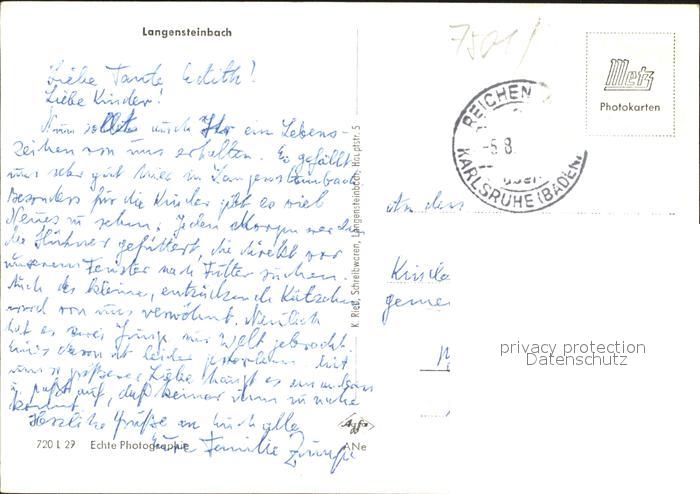 Langensteinbach
7501
Metz
Photokarten
REICHEN
-5.8.
KARLSRUHE (BADEN)
Liebe Tante Edith!
Liebe Kinder!
Nun sollt auch Ihr ein Lebens-
zeichen von uns erhalten. Es gefällt
uns sehr gut hier in Langensteinbach.
Besonders für die Kinder gibt es viel
Neues zu sehen. Jeden Morgen werden
die Hühner gefüttert, die direkt vor
unserem Fenster nach Futter suchen.
Auch das kleine, entzückende Kätzchen
wird von uns verwöhnt. Neulich
hat es zwei Junge zur Welt gebracht.
Eins davon ist leider gestorben. Mit
um so größerer Liebe hängt es am andern
u. paßt auf, daß keiner ihm zu nahe
kommt.
Herzliche Grüße an Euch alle
Eure Familie
K. Rieß, Schreibwaren, Langensteinbach, Hauptstr. 5
An den
Kinde
gemei
privacy protection
Datenschutz
720 L 27 Echte Photographie
Agfa
ANe